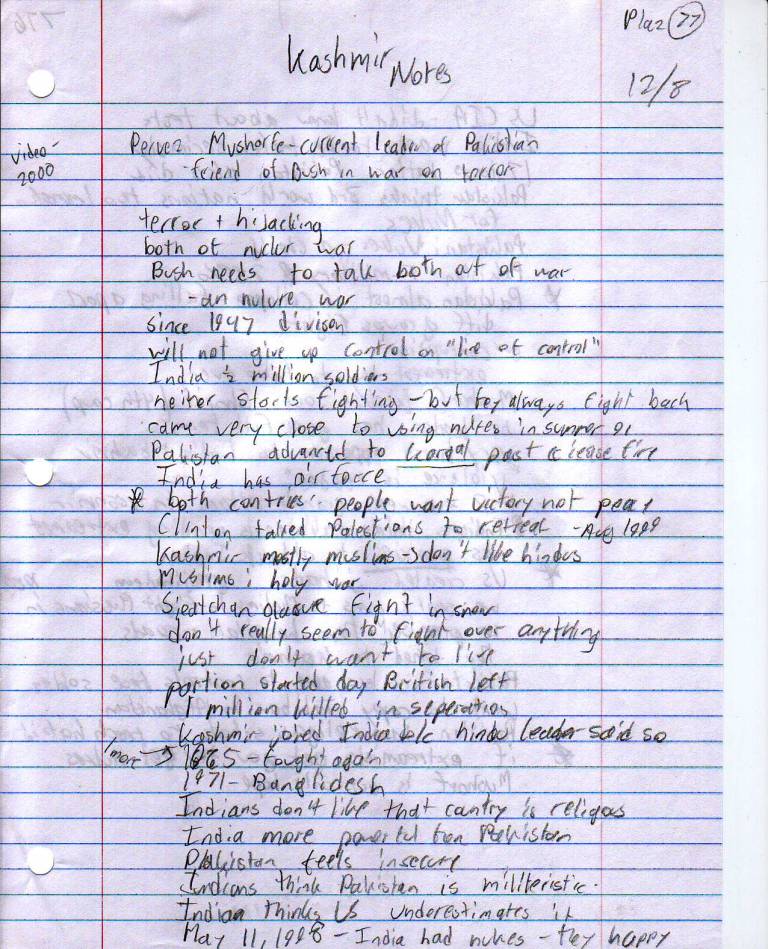 Plaz 77
Kashmir Notes
12/8
video -
2000
Pervez Mushorfe - current leader of Pakistian
- friend of Bush in war on terror
terror + hijacking
both of nuclur war
Bush needs to talk both out of war
- an nulure war
since 1947 divison
will not give up control on "line of control"
India ½ million soldiers
neither starts fighting - but they always fight back
came very close to using nukes in summer 91
Pakistan advanced to Kargal past cease fire
India has air force
* both contries: people want victory not peace
Clinton talked Palestions to retreat - Aug 1999
Kashmir mostly muslims → don't like hindus
Muslims: holy war
fight in snow
don't really seem to fight over anything
just don't want to live
partion started day British left
1 million killed in seperation
Kashmir joined India b/c hindu leader said so
1 more → 1965 - fought again
1971 - Banglidesh
Indians don't like that cantry is religous
India more powerful then Pakistan
Pakistan feels insecure
Indians think Pakistan is militeristic.
Indian thinks US underestimates it
May 11, 1998 - India had nukes - they happy